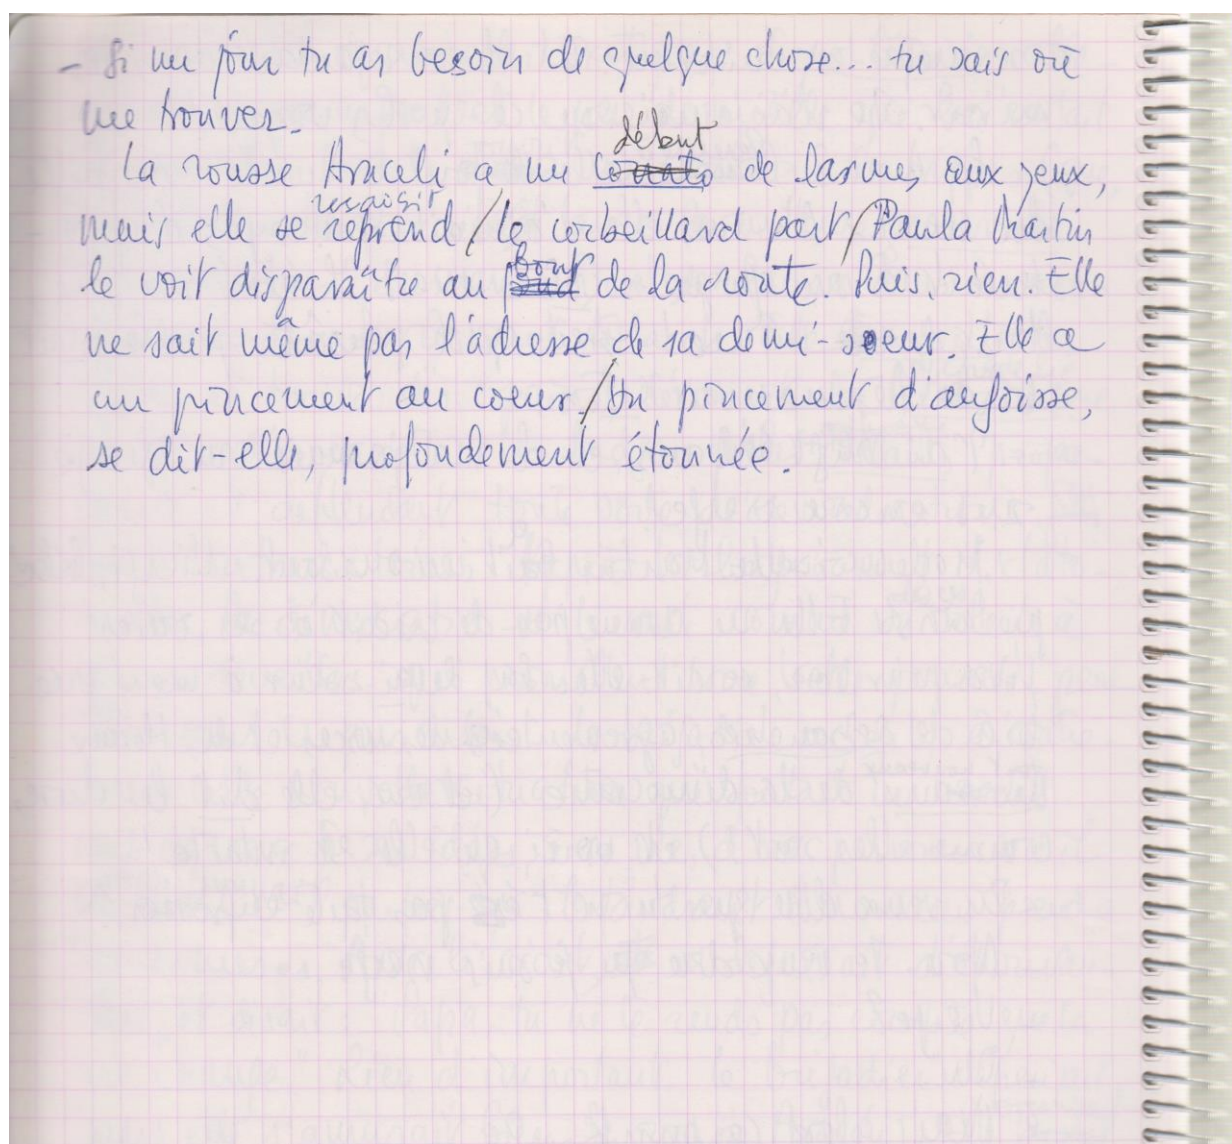 - Si un jour tu as besoin de quelque chose... tu sais où
me trouver.
début
La rousse Araceli a un conato de larmes aux yeux,
ressaisit
mais elle se reprend / le corbeillard part / Paula Martin
bout
le voit disparaître au fond de la route. Puis, rien. Elle
ne sait même pas l'adresse de sa demi-soeur. Elle a
un pincement au coeur. / Un pincement d'angoisse,
se dit-elle, profondément étonnée.